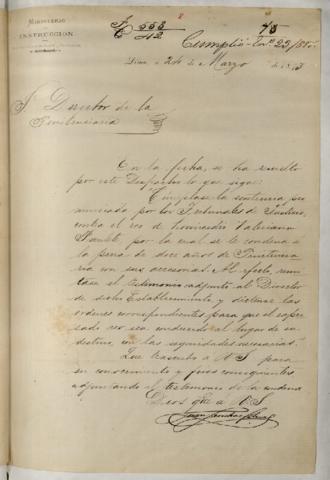 MINISTERIO
DE
INSTRUCCION
F 553
C 112
75
Cumplió En.º 23/
Lima, á 24 de Marzo de
Sr. Director de la
Penitenciaria
En la fecha, se ha resuelto
por este Despacho lo que sigue:
"Cúmplase la sentencia pro
nunciada por los Tribunales de Justicia,
contra el reo de homicidio Valeriano
por la cual se le condena á
la pena de doce años de Penitencia
ria con sus accesorias. Al efecto, remi
tase el testimonio adjunto al Director
de dicho Establecimiento y díctense las
órdenes correspondientes para que el expre
sado reo sea conducido al lugar de su
destino con las seguridades necesarias."
Que trascribo á US. para
su conocimiento y fines consiguientes
adjuntando el testimonio de la condena
Dios gde á US.